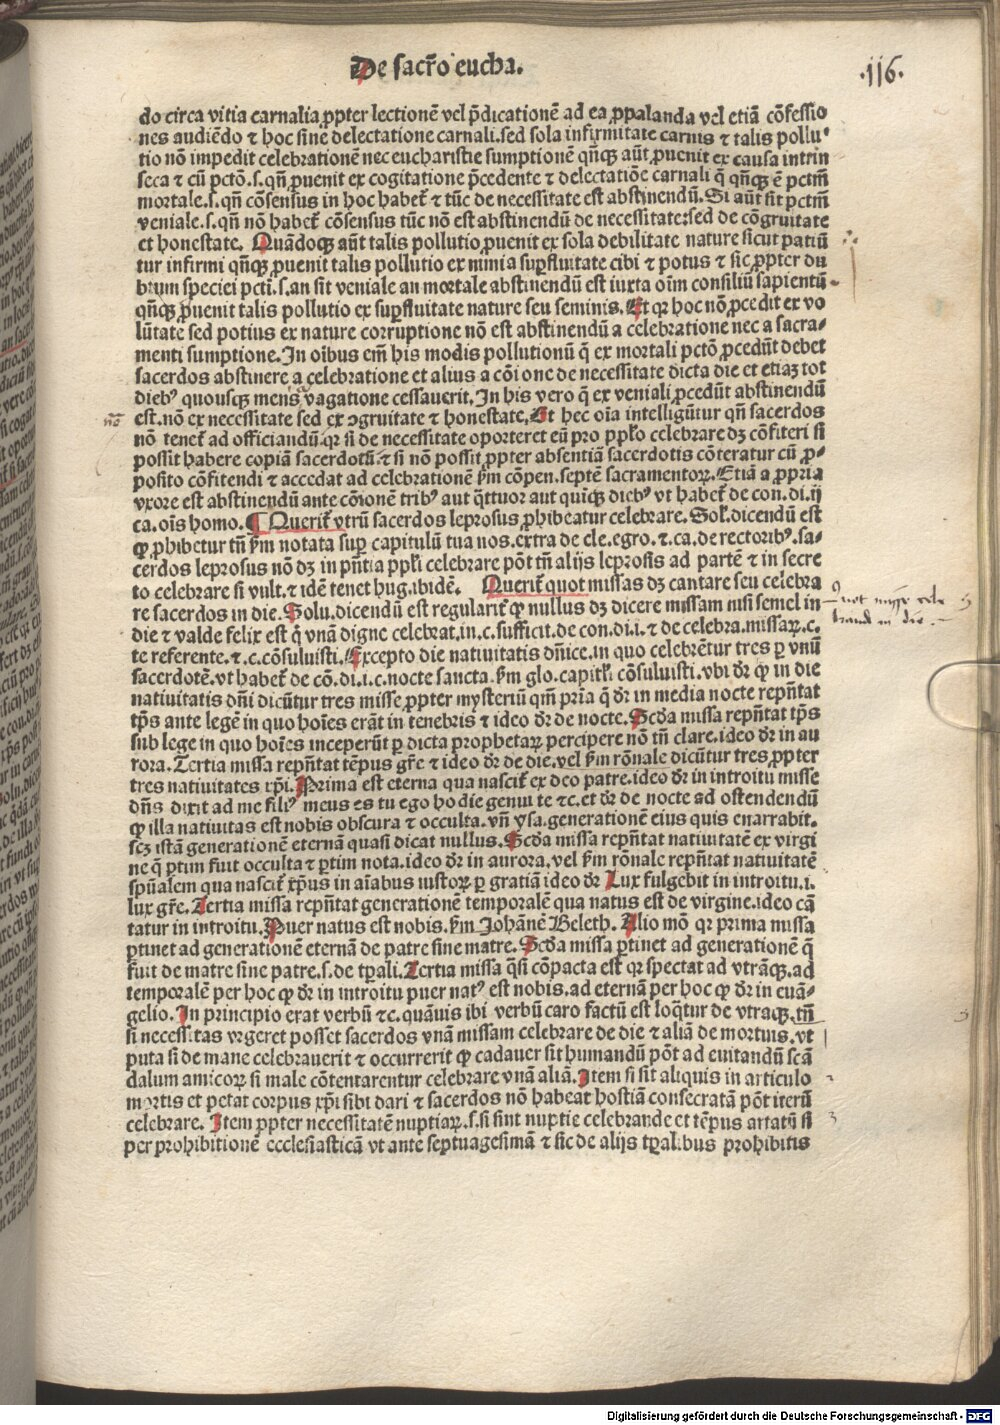 De sacr̄o eucha.
·116·
do circa vitia carnalia ꝓpter lectionē vel p̄dicationē ad ea ꝓpalanda vel etiā cōfessio
nes audiēdo ⁊ hoc sine delectatione carnali. sed sola infirmitate carnis ⁊ talis pollu
tio nō impedit celebrationē nec eucharistie sumptionē qn̄qꝫ aūt ꝓuenit ex causa intrin
seca ⁊ cū pctō. s. qn̄ ꝓuenit ex cogitatione p̄cedente ⁊ delectatiōe carnali q̄ qn̄qꝫ ē pctm̄
mortale. s. qn̄ cōsensus in hoc habet᷑ ⁊ tūc de necessitate est abstinendū. Si aūt sit pctm̄
veniale. s. qn̄ nō habet᷑ cōsensus tūc nō est abstinendū de necessitate: sed de cōgruitate
et honestate. Quādoqꝫ aūt talis pollutio ꝓuenit ex sola debilitate nature sicut patiū
tur infirmi qn̄qꝫ ꝓuenit talis pollutio ex nimia suꝑfluitate cibi ⁊ potus ⁊ sic ꝓpter du
bium speciei pcti. s. an sit veniale an mortale abstinendū est iuxta oīm consiliū sapientū
qn̄qꝫ ꝓuenit talis pollutio ex suꝑfluitate nature seu seminis. Et qꝛ hoc nō ꝓcedit ex vo
lūtate sed potius ex nature corruptione nō est abstinendū a celebratione nec a sacra⸗
menti sumptione. In oībus em̄ his modis pollutionū q̄ ex mortali pctō ꝓcedūt debet
sacerdos abstinere a celebratione et alius a cōi one de necessitate dicta die et etiaꝫ tot
dieb⁹ quousqꝫ mens vagatione cessauerit. In his vero q̄ ex veniali ꝓcedūt abstinendū
est. nō ex necessitate sed ex ꝯgruitate ⁊ honestate. Et hec oīa intelligūtur qn̄ sacerdos
nō tenet᷑ ad officiandū qꝛ si de necessitate oporteret eū pro pplo celebrare dꝫ cōfiteri si
possit habere copiā sacerdotū. ⁊ si nō possit ꝓpter absentiā sacerdotis cōteratur cū ꝓ⸗
posito cōfitendi ⁊ accedat ad celebrationē ẜm cōpen. septē sacramentoꝝ. Etiā a ꝓpria
vxore est abstinendū ante cōionē trib⁹ aut q̄ttuor aut quīqꝫ dieb⁹ vt habet᷑ de con. di. ij
ca. oīs homo. ¶ Querit᷑ vtrū sacerdos leprosus ꝓhibeatur celebrare. Sol. dicendū est
ꝙ ꝓhibetur tn̄ ẜm notata suꝑ capitulū tua nos. extra de cle. egro. ⁊. ca. de rectorib⁹. sa⸗
cerdos leprosus nō dꝫ in pn̄tia ppli celebrare pōt tn̄ alijs leprosis ad partē ⁊ in secre
to celebrare si vult. ⁊ idē tenet hug. ibidē. Querit᷑ quot missas dꝫ cantare seu celebra
re sacerdos in die. Solu. dicendū est regularit᷑ ꝙ nullus dꝫ dicere missam nisi semel in
die ⁊ valde felix est q̄ vnā digne celebrat. in. c. sufficit. de con. di. i. ⁊ de celebra. missaꝝ. c.
te referente. ⁊. c. cōsuluisti. Excepto die natiuitatis dn̄ice. in quo celebrētur tres ꝑ vnū
sacerdotē. vt habet᷑ de cō. di. i. c. nocte sancta. ẜm glo. capitl̄i cōsuluisti. vbi dr̄ ꝙ in die
natiuitatis dn̄i dicūtur tres misse ꝓpter mysteriū qm̄ pr̄ia q̄ dr̄ in media nocte repn̄tat
tp̄s ante legē in quo hoīes erāt in tenebris ⁊ ideo dr̄ de nocte. Scd̄a missa repn̄tat tp̄s
sub lege in quo hoīes inceperūt ꝑ dicta prophetaꝝ percipere nō tn̄ clare. ideo dr̄ in au
rora. Tertia missa repn̄tat tēpus gr̄e ⁊ ideo dr̄ de die. vel ẜm rōnale dicūtur tres ꝓpter
tres natiuitates xp̄i. Prima est eterna qua nascit᷑ ex deo patre. ideo dr̄ in introitu misse
dn̄s dixit ad me fili⁹ meus es tu ego hodie genui te ⁊c. et dr̄ de nocte ad ostendendū
ꝙ illa natiuitas est nobis obscura ⁊ occulta. vn̄ ysa. generationē eius quis enarrabit.
scꝫ istā generationē eternā quasi dicat nullus. Scd̄a missa repn̄tat natiuitatē ex virgi
ne q̄ ꝑtim fuit occulta ⁊ ꝑtim nota. ideo dr̄ in aurora. vel ẜm rōnale repn̄tat natiuitatē
spūalem qua nascit᷑ xp̄us in aīabus iustoꝝ ꝑ gratiā ideo dr̄ Lux fulgebit in introitu. i.
lux gr̄e. Tertia missa repn̄tat generationē temporalē qua natus est de virgine. ideo cā
tatur in introitu. Puer natus est nobis. ẜm Johānē Beleth. Alio mō qꝛ prima missa
ꝑtinet ad generationē eternā de patre sine matre. Scd̄a missa ꝑtinet ad generationē q̄
fuit de matre sine patre. s. de tꝑali. Tertia missa q̄si cōpacta est qꝛ spectat ad vtrāqꝫ. ad
temporalē per hoc ꝙ dr̄ in introitu puer nat⁹ est nobis. ad eternā per hoc ꝙ dr̄ in euā⸗
gelio. In principio erat verbū ⁊c. quāuis ibi verbū caro factū est loq̄tur de vtraqꝫ. tn̄
si necessitas vrgeret posset sacerdos vnā missam celebrare de die ⁊ aliā de mortuis. vt
puta si de mane celebrauerit ⁊ occurrerit ꝙ cadauer sit humandū pōt ad euitandū scā
dalum amicoꝝ si male cōtentarentur celebrare vnā aliā. Item si sit aliquis in articulo
mortis et petat corpus xp̄i sibi dari ⁊ sacerdos nō habeat hostiā consecratā pōt iterū
celebrare. Item ꝓpter necessitatē nuptiaꝝ. s. si sint nuptie celebrande et tēpus artatū si
per prohibitionē ecclesiasticā vt ante septuagesimā ⁊ sic de alijs tꝑalibus prohibitis
Digitalisierung gefördert durch die Deutsche Forschungsgemeinschaft - DFG